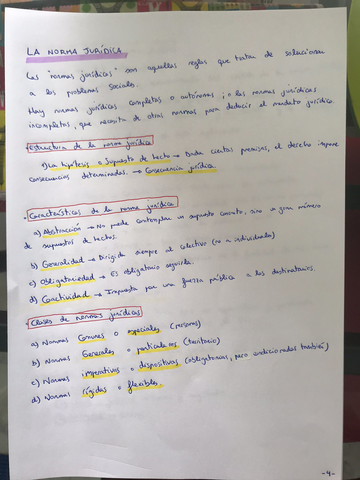 LA NORMA JURÍDICA
Las "normas jurídicas" son aquellas reglas que tratan de solucionar
a los problemas sociales.
Hay normas jurídicas completas o autónomas; o las normas jurídicas
incompletas, que necesita de otras normas para deducir el mandato jurídico.
Estructura de la norma jurídica
La hipótesis o supuesto de hecho → Dada ciertas premisas, el derecho impone
consecuencias determinadas. → Consecuencia jurídica.
Características de la norma jurídica
a) Abstracción → No puede contemplar un supuesto concreto, sino → gran número
de supuestos de hechos.
b) Generalidad → Dirigida siempre al colectivo (no a individuales)
c) Obligatoriedad → Es obligatorio seguirla.
d) Coactividad → Impuesta por una fuerza pública a los destinatarios.
Clases de normas jurídicas
a) Normas Comunes o especiales (personas)
b) Normas Generales o particulares (territorio)
c) Normas imperativas o dispositivas (obligatorias, pero condicionadas también)
d) Normas rígidas o flexibles.
-4-